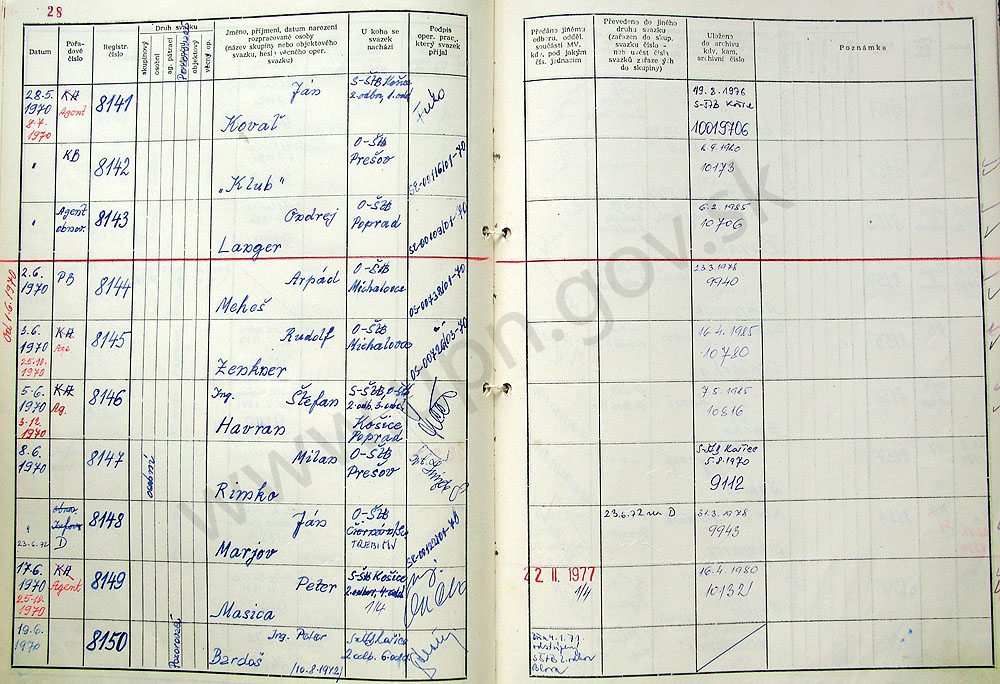 28
Datum
Pořa-
dové
číslo
Registr.
číslo
Druh svazku
skupinový
osobní
ag. pátrací
objektový
věcný op.
Jméno, příjmení, datum narození
rozpracované osoby
(název skupiny nebo objektového
svazku, heslo věcného oper.
svazku)
U koho se
svazek
nachází
Podpis
oper. prac.,
který svazek
přijal
Předáno jinému
odboru, odděl.
součásti MV,
kdy, pod jakým
čís. jednacím
Převedeno do jiného
druhu svazku
svazku čísla
do skupiny)
Uloženo
do archivu
kdy, kam,
archivní číslo
Poznámka
28.5.
1970
8.7.
1970
KA
Agent
8141
Ján
Kovaľ
S-ŠtB Košice
2.odbor, 1.odd
Fuko
19.8.1976
S-ŠtB Košice
10019706
"
KB
8142
„Klub"
O-ŠtB
Prešov
SE-00116/01-70
10173
"
Agent
obnov.
8143
Ondrej
Langer
O-ŠtB
Poprad
SE-00109/01-70
6.2.1985
10706
Od 1.6.1970
2.6.
1970
PB
8144
Arpád
Meheš
O-ŠtB
Michalovce
OS-00738/01-70
23.3.1978
9940
3.6.
1970
25.12.
1970
KA
8145
Rudolf
Zenkner
O-ŠtB
Michalovce
16.4.1985
10780
5.6.
1970
3.12.
1970
KA
Ag.
8146
Ing. Štefan
Havran
S-ŠtB, O-ŠtB
Košice
Poprad
7.5.1985
10816
8.6.
1970
8147
osobní
Milan
Rimko
O-ŠtB
Prešov
S-ŠtB Košice
5.8.1970
9112
"
23.6.72
D
8148
Ján
Marjov
O-ŠtB
TREBIŠOV
23.6.72 na D
31.3.1978
9943
17.6.
1970
25.12.
1970
KA
Agent
8149
Peter
Masica
S-ŠtB Košice
2.odbor, 4.odd
1/4
22 II. 1977
1/4
16.4.1980
10132
19.6.
1970
8150
Pozorovací
Ing. Peter
Bardoš
(10.8.1942)
S-ŠtB Košice
2.odb. 6.odd
Dňa 4.1.71
www.upn.gov.sk